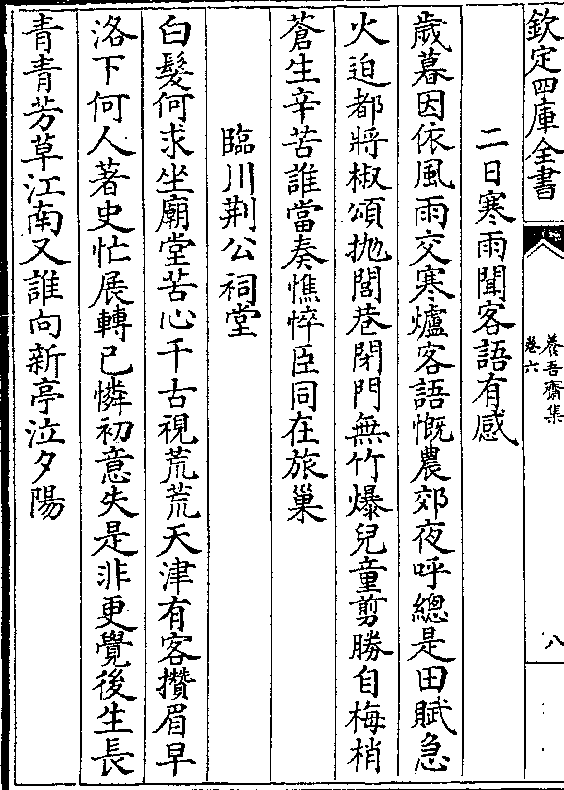 欽定四庫全書
養吾齋集
卷六
八
二日寒雨聞客語有感
歲暮因依風雨交寒爐客語慨農郊夜呼總是田賦急
火迫都將椒頌拋閭巷閉門無竹爆兒童剪勝自梅梢
蒼生辛苦誰當奏憔悴臣同在旅巢
臨川荆公祠堂
白髮何求坐廟堂苦心千古視荒荒天津有客攢眉早
洛下何人著史忙展轉已憐初意失是非更覺後生長
青青芳草江南又誰向新亭泣夕陽